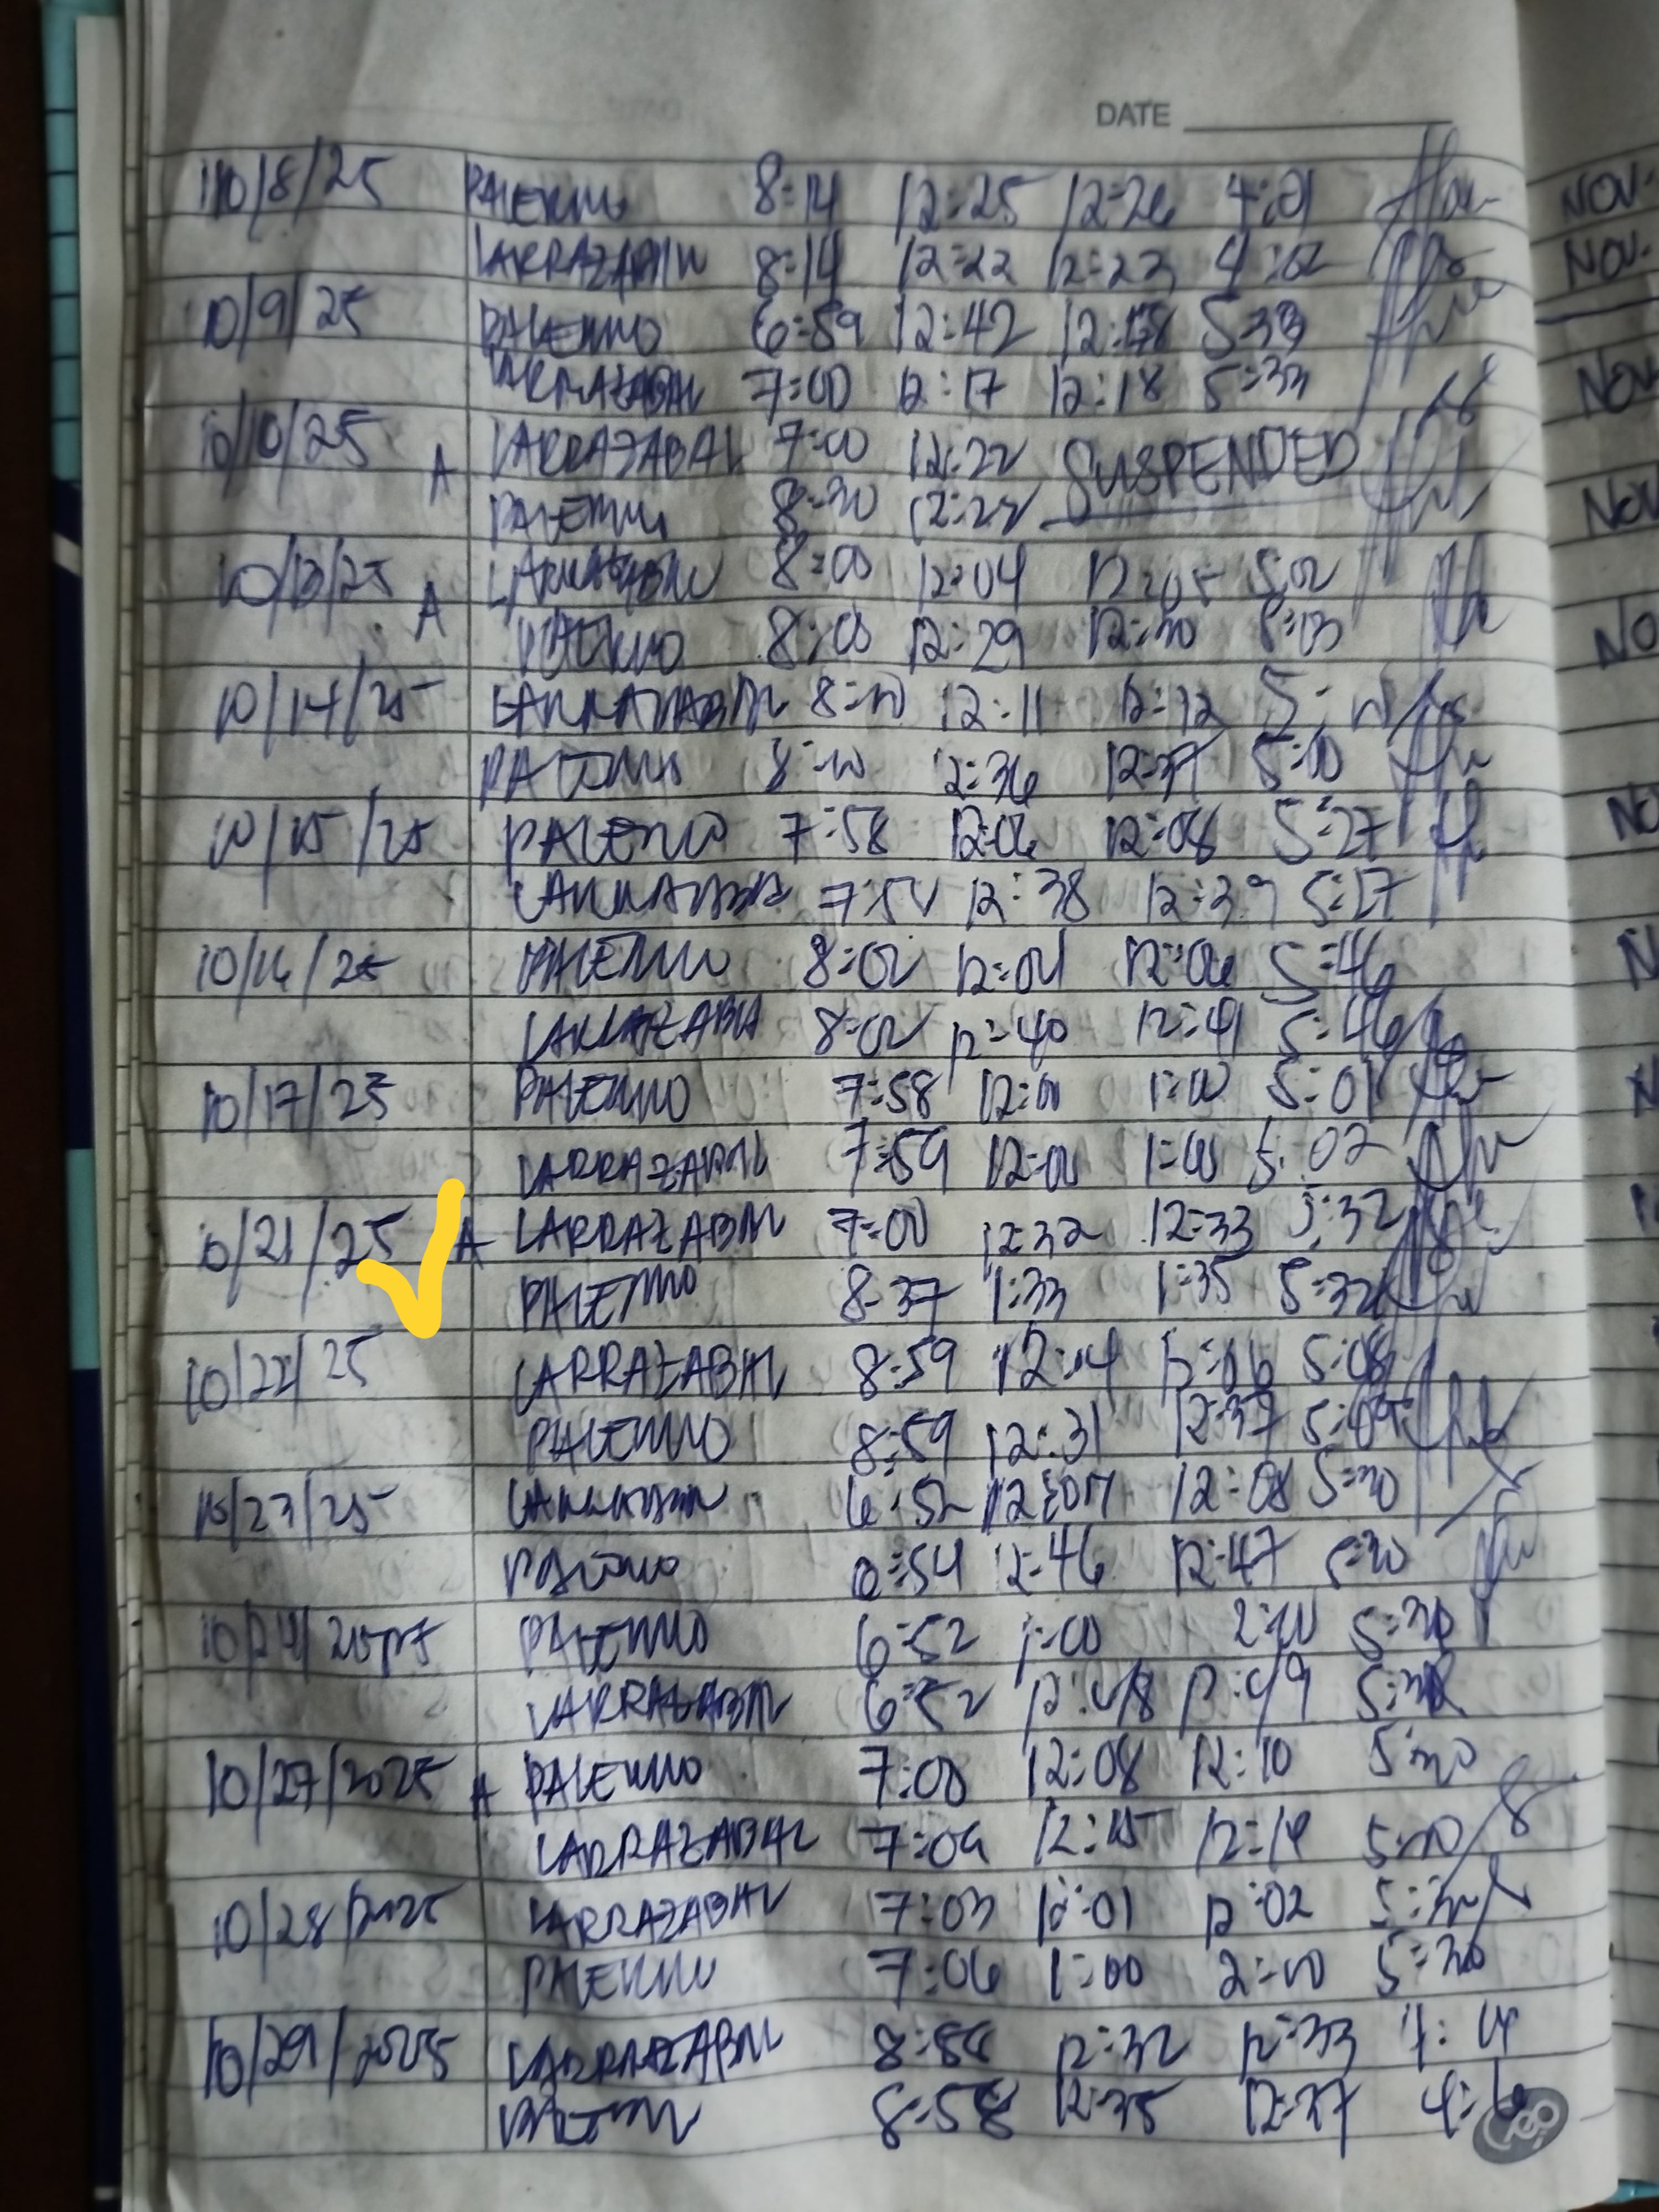 DATE
10/8/25 PALERMO 8:14 12:25 12:26 4:01
LARRAZABAL 8:14 12:22 12:23 4:02
10/9/25 PALERMO 6:59 12:42 12:48 5:33
LARRAZABAL 7:00 12:17 12:18 5:33
10/10/25 A LARRAZABAL 7:00 12:22 SUSPENDED
PALERMO 8:30 12:22
10/13/25 A LARRAZABAL 8:00 12:04 12:05 5:02
PALERMO 8:00 12:29 12:30 5:03
10/14/25 LARRAZABAL 8:00 12:11 12:12 5:00
PALERMO 8:00 12:36 12:37 5:00
10/15/25 PALERMO 7:58 12:06 12:08 5:27
LARRAZABAL 12:38 12:39 5:27
10/16/25 PALERMO 8:02 12:04 12:06 5:46
LARRAZABAL 8:02 12:40 12:41 5:46
10/17/25 PALERMO 7:58 12:00 1:00 5:01
LARRAZABAL 7:59 12:00 1:00 5:02
10/21/25 A LARRAZABAL 7:00 12:32 12:33 5:32
PALERMO 8:37 1:33 1:35 5:32
10/22/25 LARRAZABAL 8:59 12:04 12:06 5:08
PALERMO 8:59 12:31 12:37
10/23/25 LARRAZABAL 6:52 12:07 12:08 5:30
PALERMO 6:54 12:46 12:47 5:30
PALERMO 6:52 1:00 2:00 5:30
LARRAZABAL 6:52 12:48 12:49
10/27/2025 A PALERMO 7:00 12:08 12:10 5:30
LARRAZABAL 7:09 12:15 5:30
10/28/2025 LARRAZABAL 7:03 12:01 12:02 5:30
PALERMO 7:06 1:00 2:00 5:30
10/29/2025 LARRAZABAL 12:32 12:33
PALERMO 8:58 12:35 12:37
NOV-
NOV-
NOV
NOV
NO
NO
N
N